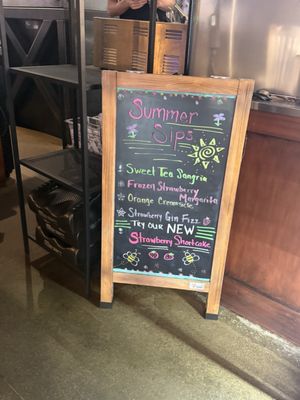 Summer
Sips
Sweet Tea Sangria
Frozen Strawberry
Margarita
Orange Creamsicle
Strawberry Gin Fizz
Try our NEW
Strawberry Shortcake